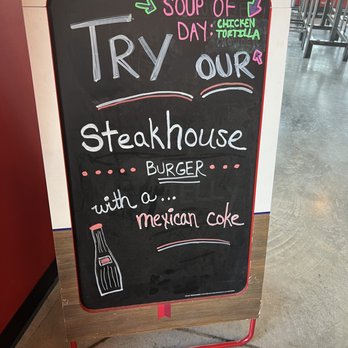 SOUP OF
DAY: CHICKEN
TORTILLA
TRY OUR
Steakhouse
BURGER
with a...
mexican coke